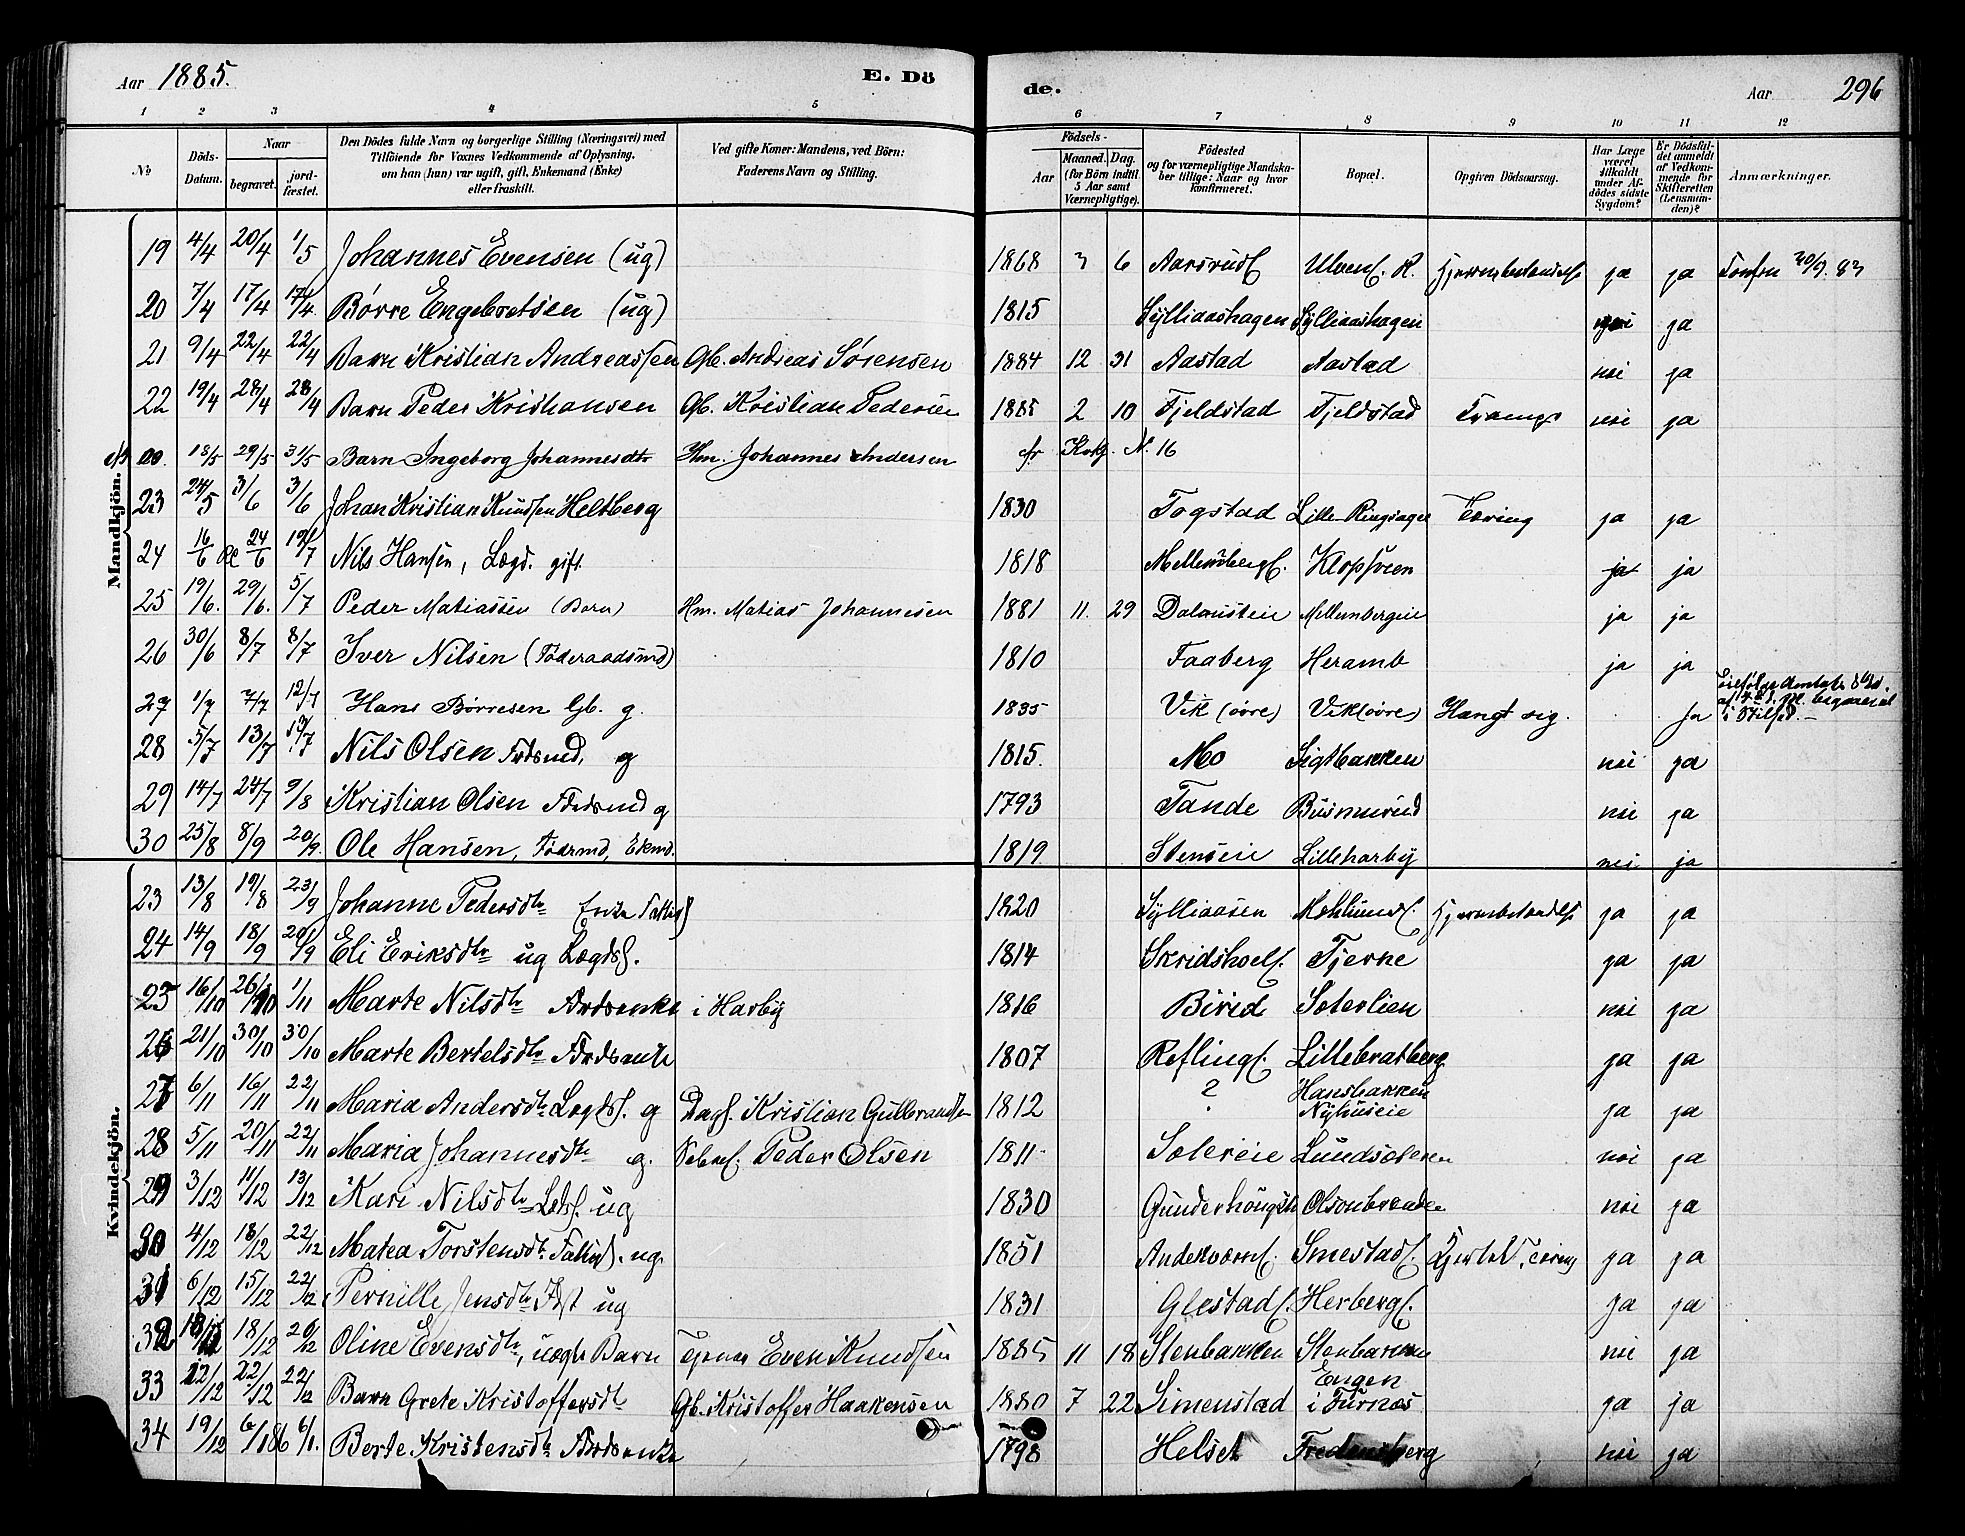 Aar 1885. E. Dö de. Aar 296
1 2 3 4 5 6 7 8 9 10 11 12
No Döds-Datum. Naar begravet. jord-fæstet. Den Dödes fulde Navn og borgerlige Stilling (Næringsvei) med Tilföiende for Voxnes Vedkommende af Oplysning, om han (hun) var ugift, gift, Enkemand (Enke) eller fraskilt. Ved gifte Koner: Mandens, ved Börn: Faderens Navn og Stilling. Födsels- Aar Maaned. Dag. (for Börn indtil 5 Aar samt Værnepligtige). Födested og for værnepligtige Mandskaber tillige: Naar og hvor konfirmeret. Bopæl. Opgiven Dödsaarsag. Har Læge været tilkaldt under Afdödes sidste Sygdom? Er Dödsfaldet anmeldt af Vedkommende for Skifteretten (Lensmanden)? Anmærkninger.
Mandkjön.
19 4/4 20/4 1/5 Johannes Evensen (ug) 1868 3 6 Aarsrudf Ulvenf. R. Hjernebetændelse ja ja 20/9. 83
20 7/4 17/4 17/4 Børre Engebretsen (ug) 1815 Sylliaashagen Sylliaashagen nei ja
21 9/4 22/4 22/4 Barn Kristian Andreassen Gb. Andreas Sørensen 1884 12 31 Aastad Aastad nei ja
22 19/4 28/4 28/4 Barn Peder Kristiansen Gb. Kristian Pedersen 1885 2 10 Fjeldstad Fjeldstad nei ja
18/5 29/5 31/5 Barn Ingeborg Johannesdtr Hm. Johannes Andersen cfr Kvkj. N. 16
23 24/5 3/6 3/6 Johan Kristian Knudsen Heltberg 1830 Fogstad Lille-Ringsager Tæring ja ja
24 16/6 24/6 Nils Hansen, Lægd. gift. 1818 Mellembergf. Klopsveen ja ja
25 19/6. 29/6. 5/7 Peder Matiassen (Barn) Hm. Matias Johannesen 1881 11. 29 Dalenseie Mellembergeie ja ja
26 30/6 8/7 8/7 Iver Nilsen (Föderaadsmd) 1810 Faaberg Heramb ja ja
27 1/7 7/7 12/7 Hans Børresen Gb. g. 1835 Vik (øvre) Vik (øvre) Hængt sig. ja
28 5/7 13/7 19/7 Nils Olsen Fdrdsmd, g 1815. Mo Sigtbakken nei ja
29 14/7 24/7 9/8 Kristian Olsen Fdrdsmd g 1793 Tande Busmurud nei ja
30 25/8 8/9 20/9. Ole Hansen, Födrmd, Ekmd. 1819 Stenseie Lilleharby nei ja
Kvindekjön.
23 13/8 19/8 23/9 Johanne Pedersdtr Enke 1820 Sylliaasen Hjernebetændelse ja ja
24 14/9 18/9 20/9 Eli Eriksdtr ug Lægdsl. 1814 Skridshoelf. Tjerne ja ja
25 16/10 26/10 1/11 Marte Nilsdtr Fdrdsenke i Harby 1816 Birid Soterlien nei ja
26 21/10 30/10 30/10 Marte Bertelsdtr Fdrdsenke 1807 Reflingf. Lillebratberg ja ja
27 6/11 16/11 22/11 Maria Andersdtr Lægdsl. g Dagl. Kristian Gulbrandsen 1812 ? Hansbakken Nyhuseie ja ja
28 5/11 20/11 22/11 Maria Johannesdtr g. Selvei. Peder Olsen 1811 Sotereie Lundsoteren nei ja
29 3/12 11/12 13/12 Kari Nilsdtr Lædsl. ug 1830 Gunderhougsh Olsonbrænden nei ja
30 4/12 18/12 22/12 Matea Torstensdtr Fattigl. ug. 1851 Andekvernf. Smestadf. Hjertef., Tæring ja ja
31 6/12 15/12 22/12 Pernille Jensdtr ug 1831 Glestadf. Herbergf. ja ja
32 18/12 26/12 Oline Evensdtr, uægte Barn Even Knudsen 1885 11 18 Stenbakken Stenbakken nei ja
33 12/12 22/12 22/12 Barn Grete Kristoffersdt Gb. Kristoffer Haakensen 1880 7 22 Simenstad Engen i Furnæs ja ja
34 19/12 6/1 86 6/1. Berte Kristensdtr Fdrdsenke 1798 Helset Fredensberg nei ja